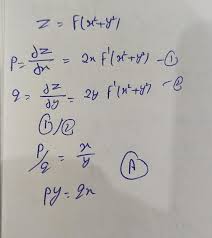 Z = F(x²+y²)
P = ∂z/∂x = 2x F'(x²+y²) — ①
q = ∂z/∂y = 2y F'(x²+y²) — ②
①/②
P/q = x/y Ⓐ
Py = qx